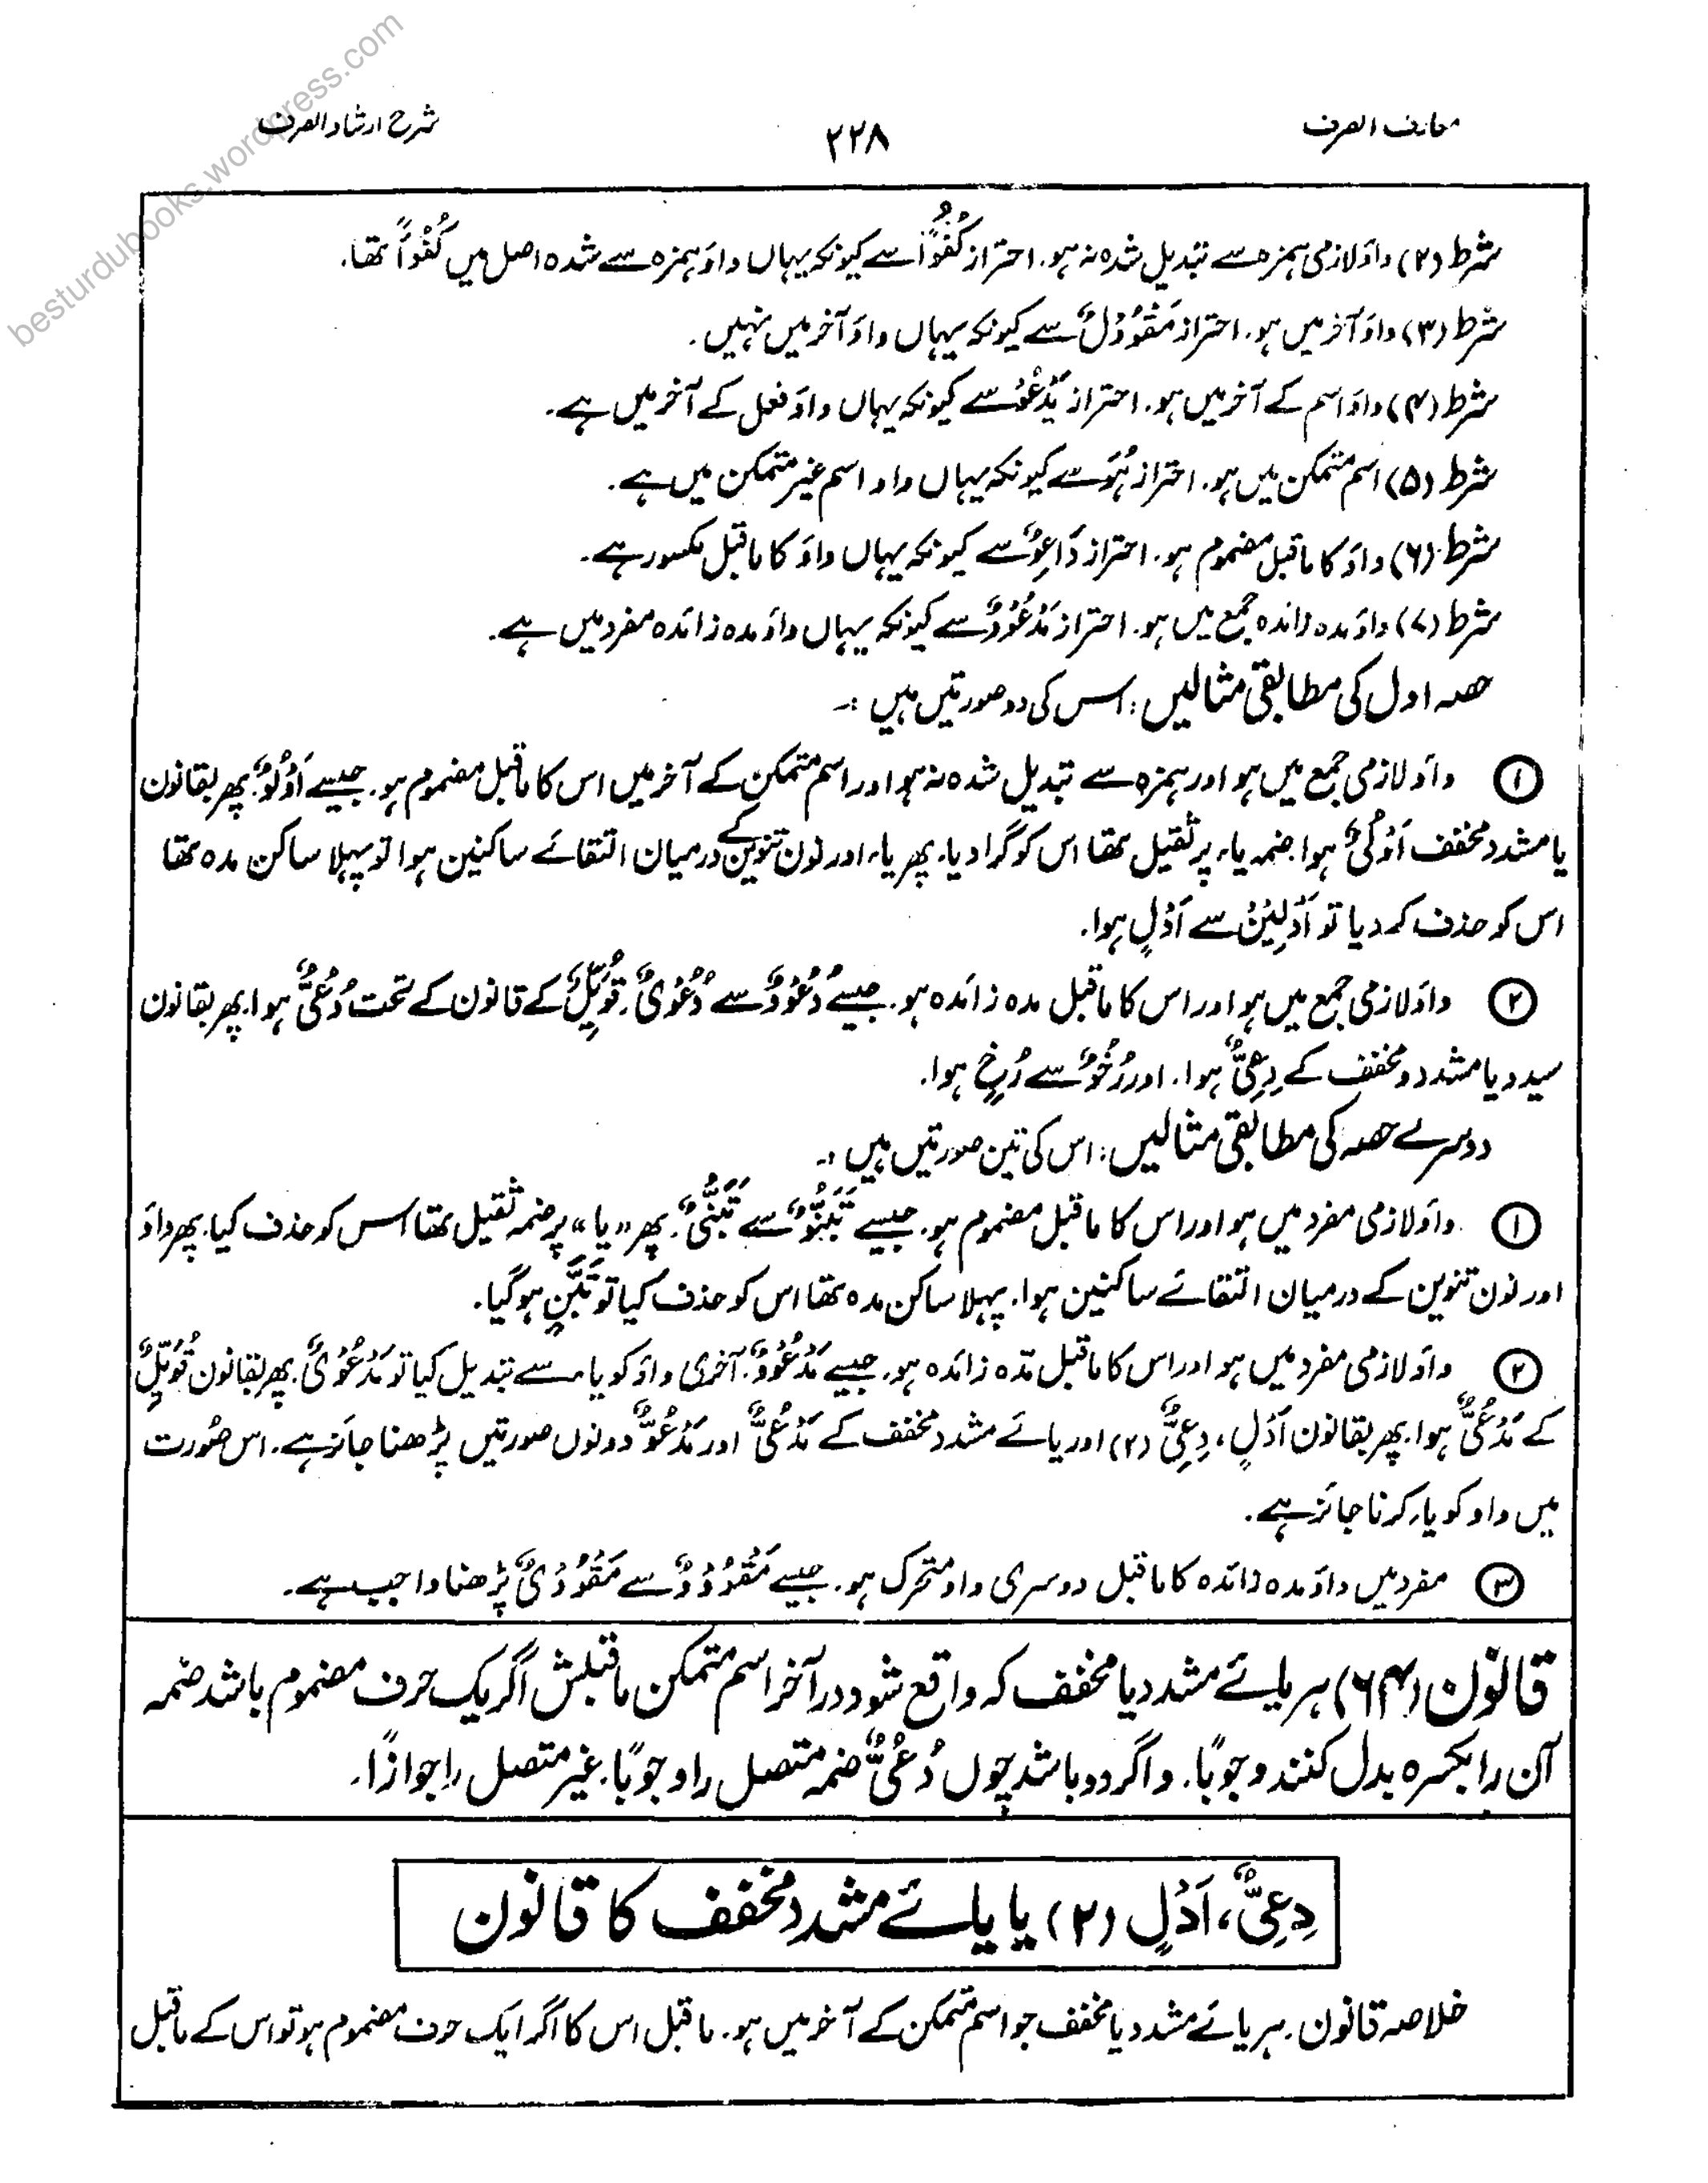 معارف الصرف
۲۲۸
شرح ارشاد الصرف
besturdubooks.wordpress.com
شرط (۲) واؤ لازمی ہمزہ سے تبدیل شدہ نہ ہو. احتراز کُفُوًا سے کیونکہ یہاں واؤ ہمزہ سے شدہ اصل میں کُفُؤًا تھا.
شرط (۳) واؤ آخر میں ہو. احتراز مَقْوُوْلٌ سے کیونکہ یہاں واؤ آخر میں نہیں.
شرط (۴) واؤ اسم کے آخر میں ہو. احتراز یَدْعُوْ سے کیونکہ یہاں واؤ فعل کے آخر میں ہے.
شرط (۵) اسم متمکن میں ہو. احتراز ہُوَ سے کیونکہ یہاں واو اسم غیر متمکن میں ہے.
شرط (۶) واؤ کا ماقبل مضموم ہو. احتراز دَاعِوٌ سے کیونکہ یہاں واؤ کا ماقبل مکسور ہے.
شرط (۷) واؤ مدہ زائدہ جمع میں ہو. احتراز مَدْعُوْوٌ سے کیونکہ یہاں واؤ مدہ زائدہ مفرد میں ہے.
حصہ اول کی مطابقی مثالیں: اس کی دو صورتیں ہیں :۔
① واؤ لازمی جمع میں ہو اور ہمزہ سے تبدیل شدہ نہ ہو اور اسم متمکن کے آخر میں اس کا ماقبل مضموم ہو. جیسے اَدْلُوٌ. پھر بقانون
یا مشدد مخفف اَدْلُیٌ ہوا. ضمہ یاء پر ثقیل تھا اس کو گرا دیا. پھر یاء اور نون تنوین کے درمیان التقائے ساکنین ہوا تو پہلا ساکن مدہ تھا
اس کو حذف کر دیا تو اَدْلِیْنْ سے اَدْلٍ ہوا.
② واؤ لازمی جمع میں ہو اور اس کا ماقبل مدہ زائدہ ہو. جیسے دُعُوْوٌ سے دُعُوْیٌ. قُوِیِّلٌ کے قانون کے تحت دُعُیٌّ ہوا. پھر بقانون
سیدو یا مشدد و مخفف کے دِعِیٌّ ہوا. اور رُخُوٌ سے رُخٍ ہوا.
دوسرے حصہ کی مطابقی مثالیں: اس کی تین صورتیں ہیں :۔
① واؤ لازمی مفرد میں ہو اور اس کا ماقبل مضموم ہو. جیسے تَبَنُّوٌ سے تَبَنُّیٌ. پھر "یا" پر ضمہ ثقیل تھا اس کو حذف کیا. پھر واؤ
اور نون تنوین کے درمیان التقائے ساکنین ہوا. پہلا ساکن مدہ تھا اس کو حذف کیا تو تَبَنٍّ ہو گیا.
② واؤ لازمی مفرد میں ہو اور اس کا ماقبل مدّہ زائدہ ہو. جیسے مَدْعُوْوٌ. آخری واؤ کو یاء سے تبدیل کیا تو مَدْعُوْیٌ. پھر بقانون قُوَیِّلٌ
کے مَدْعُیٌّ ہوا. پھر بقانون اَدْلٍ، دِعِیٌّ (۲) اور یائے مشدد مخفف کے مَدْعُیٌّ اور مَدْعُوٌّ دونوں صورتیں پڑھنا جائز ہے. اس صورت
میں واو کو یاء کرنا جائز ہے.
③ مفرد میں واؤ مدہ زائدہ کا ماقبل دوسری واو متحرک ہو. جیسے مَقْوُوْوٌ سے مَقْوُوْیٌ پڑھنا واجب ہے.
قانون (۶۴) ہر یائے مشدد یا مخفف کہ واقع شود در آخر اسم متمکن ما قبلش اگر یک حرف مضموم باشد ضمہ
آن را بکسرہ بدل کنند وجوبًا. و اگر دو باشد چوں دُعُیٌّ ضمہ متصل را وجوبًا. غیر متصل را جوازًا.
دِعِیٌّ، اَدْلٍ (۲) یا یائے مشدد مخفف کا قانون
خلاصہ قانون. ہر یائے مشدد یا مخفف جو اسم متمکن کے آخر میں ہو. ماقبل اس کا اگر ایک حرف مضموم ہو تو اس کے ماقبل